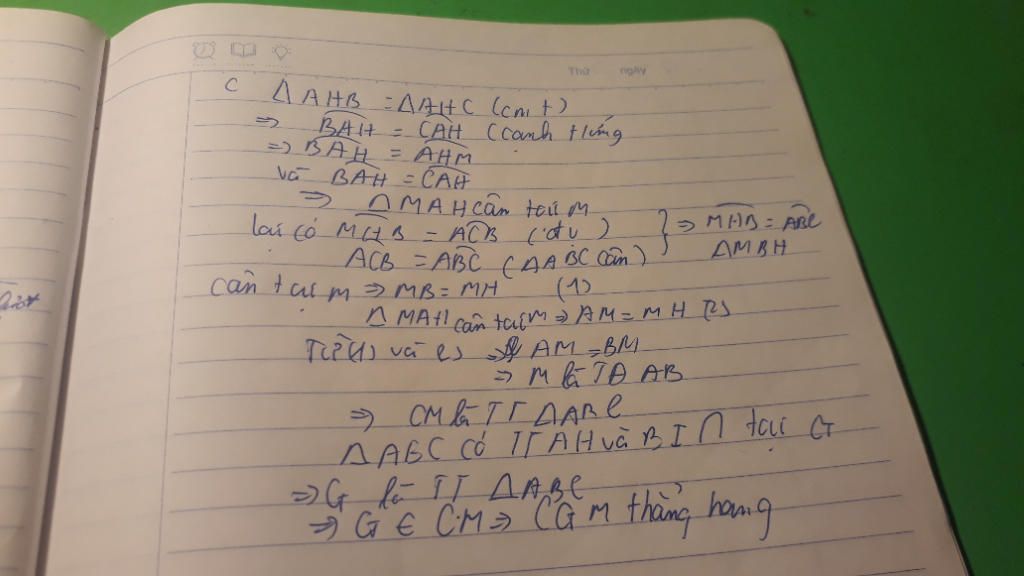 Thứ ngày
C ΔAHB = ΔAHC (cmt)
=> BAH = CAH (canh tứng
=> BAH = AHM
và BAH = CAH
=> ΔMAH cân tại M
lại có MHB = ACB (đv) } => MHB = ABC
ACB = ABC (ΔABC cân) ΔMBH
cân tại M => MB = MH (1)
ΔMAH cân tại M => AM = MH (2)
Từ (1) và (2) => AM = BM
=> M là TĐ AB
=> CM là TT ΔABC
ΔABC có TT AH và BI ∩ tại G
=> G là TT ΔABC
=> G ∈ CM => CGM thẳng hang